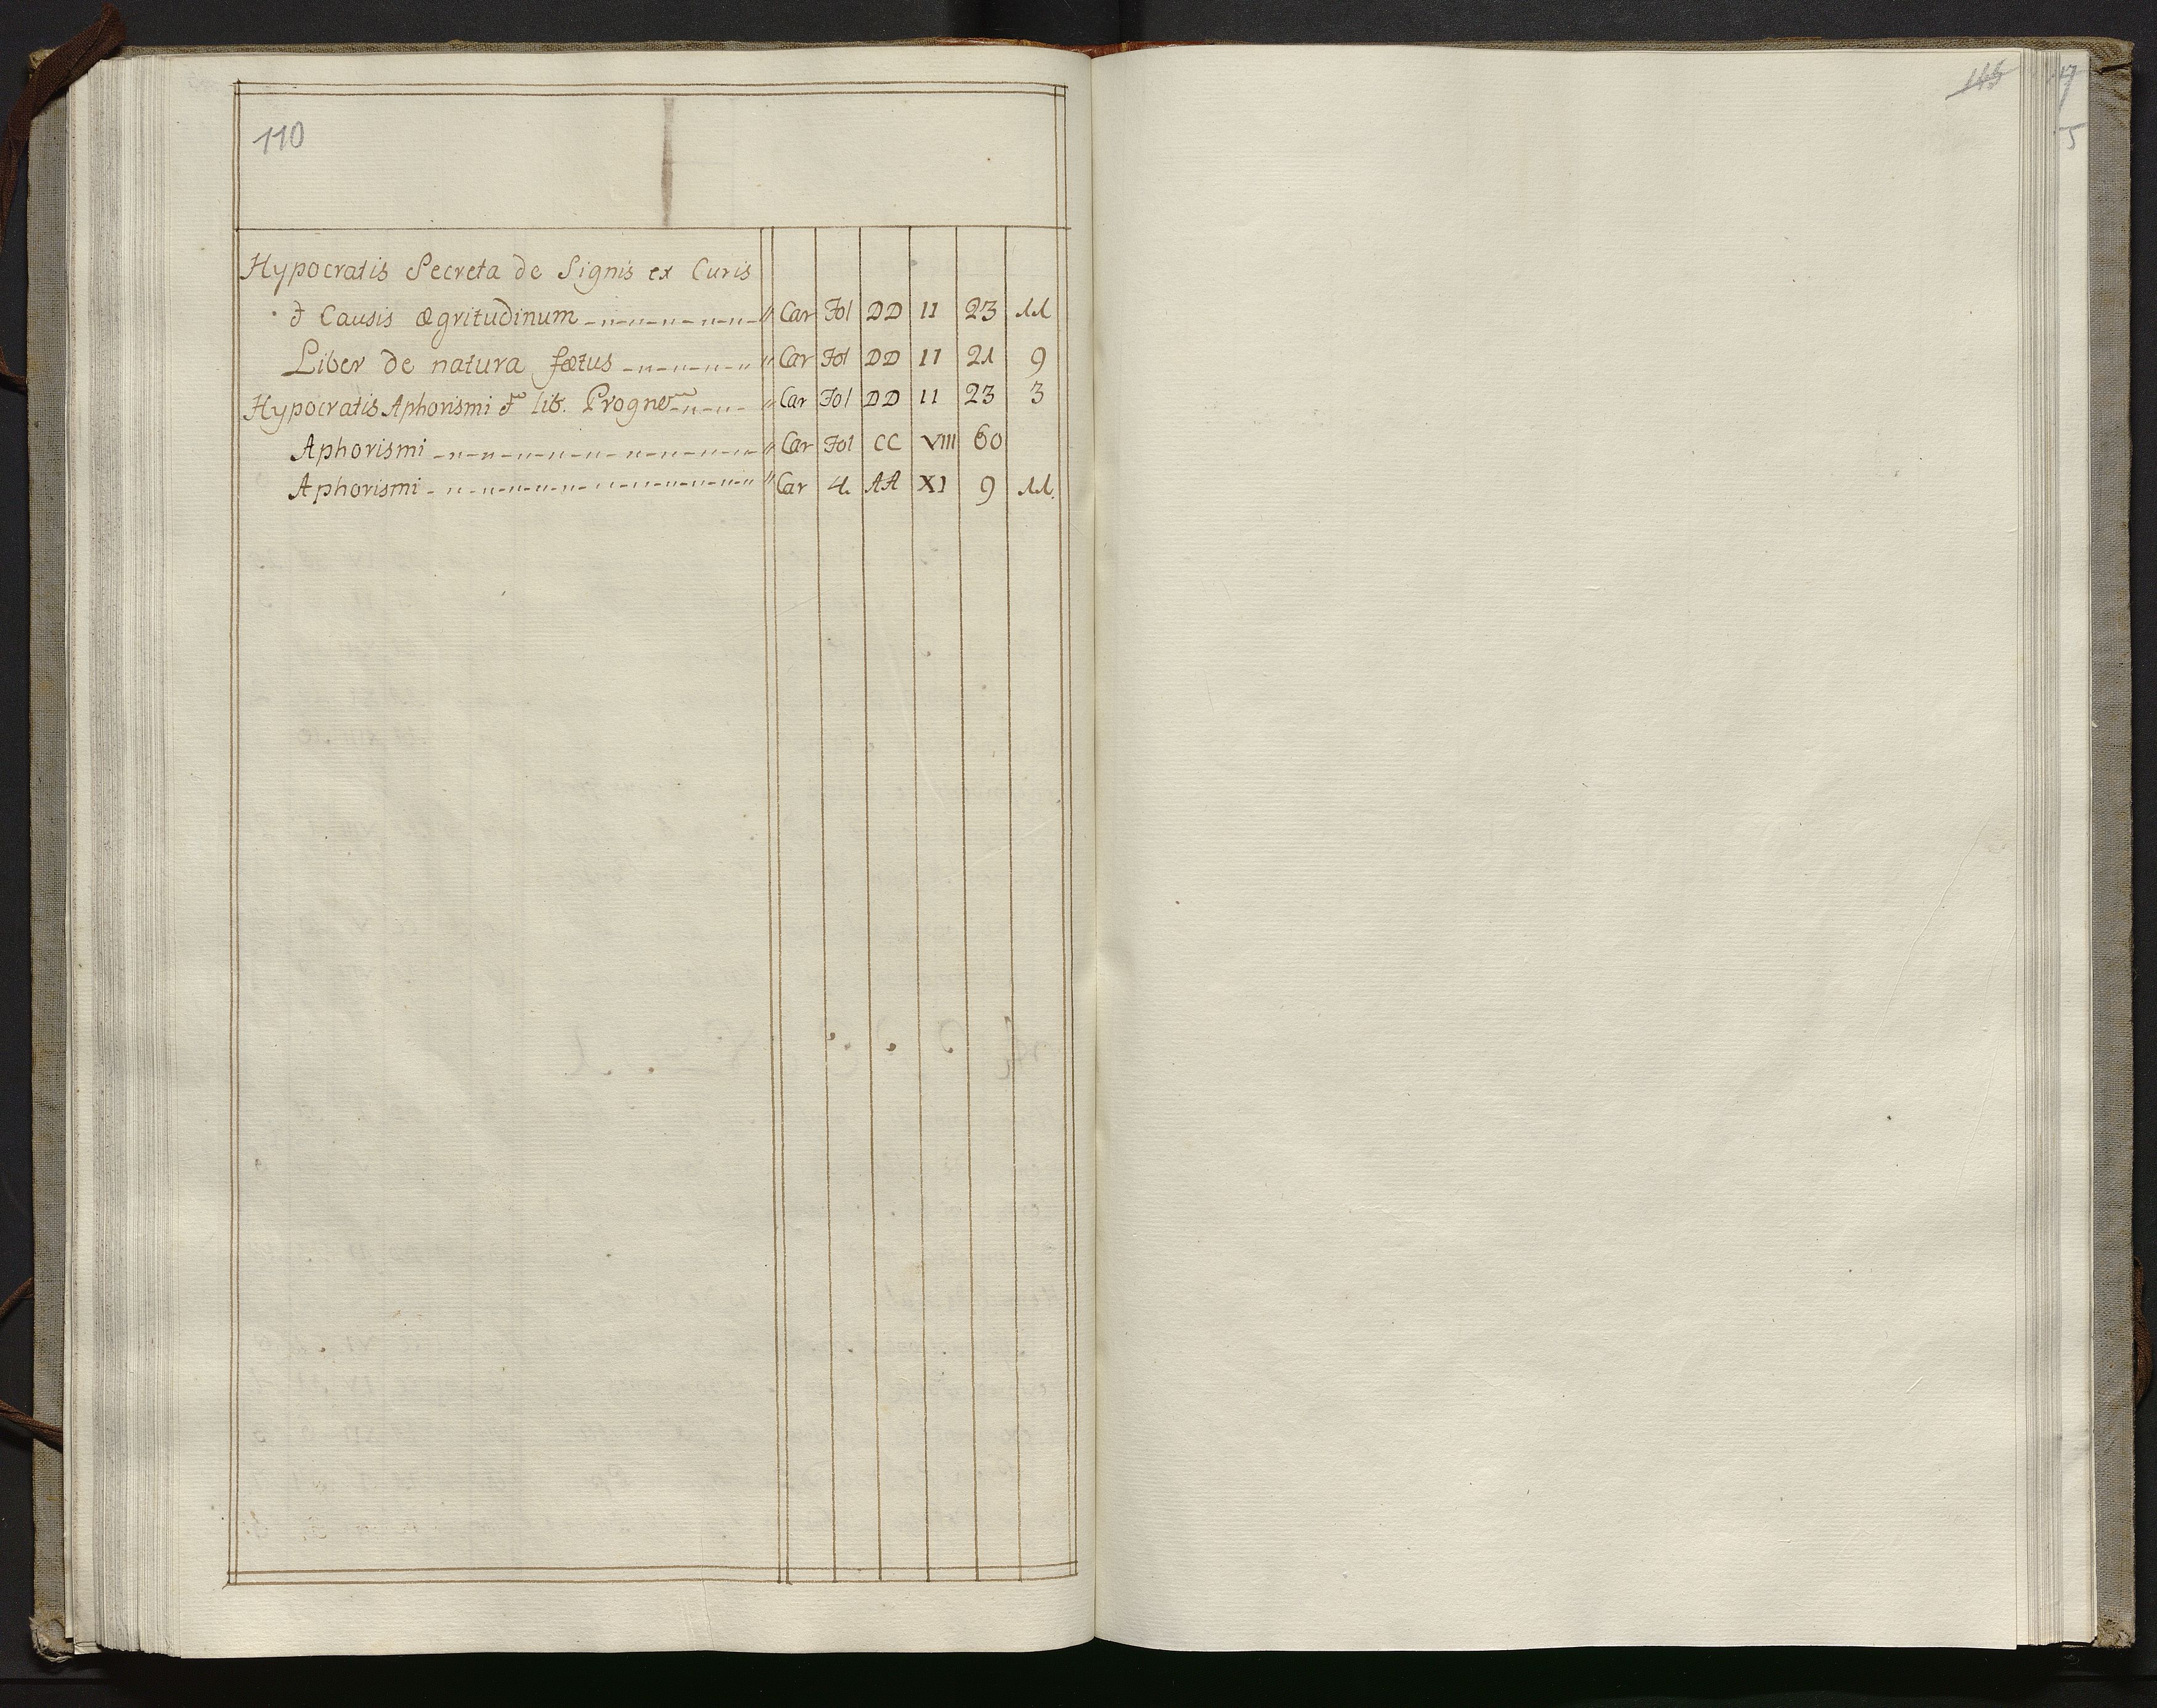 110
Hypocratis Secreta de Signis ex Curis
& Causis ægritudinum " Car Fol DD II 23 11
Liber de natura fœtus " Car Fol DD II 21 9
Hypocratis Aphorismi & lib. Progno " Car Fol DD II 23 3
Aphorismi " Car Fol CC VIII 60
Aphorismi " Car 4. AA XI 9 11.